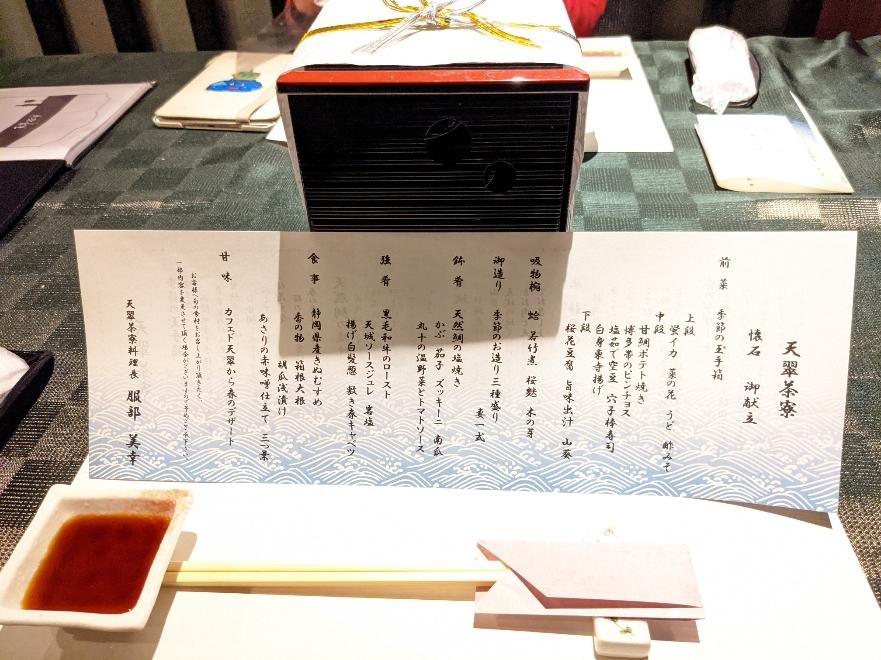 天翠茶寮
懐石　御献立
前菜　季節の玉手箱
上段
蛍イカ　菜の花　うど　酢みそ
中段
甘鯛ポテト焼き
博多帯のピンチョス
塩茹で空豆　穴子棒寿司
白身東寺揚げ
下段
桜花豆腐　旨味出汁　山葵
吸物椀　蛤　若竹煮　桜麩　木の芽
御造り　季節のお造り三種盛り
妻一式
鉢肴　天然鯛の塩焼き
かぶ　茄子　ズッキーニ　南瓜
丸十の温野菜とトマトソース
強肴　黒毛和牛のロースト
天城ソースジュレ　岩塩
揚げ白髪葱　敷き春キャベツ
食事　静岡県産きぬむすめ
香の物　箱根大根
胡瓜浅漬け
あさりの赤味噌仕立て　三つ葉
甘味　カフェド天翠から春のデザート
お客様に旬の食材をお召し上がり頂きたく、
一部内容を変更させて頂く場合がございますので予めご了承下さい
天翠茶寮料理長　服部　美幸